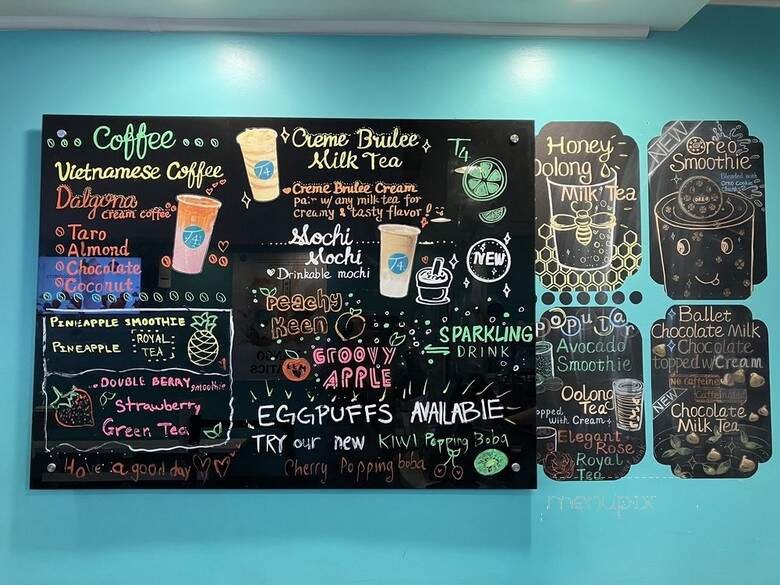 Coffee
Vietnamese Coffee
Dalgona
cream coffee
Taro
Almond
Chocolate
Coconut
T4
T4
Creme Brulee
Milk Tea
Creme Brulee Cream
pair w/ any milk tea for
creamy & tasty flavor!
T4
Mochi
Mochi
Drinkable mochi
T4
NEW
Peachy
Keen
GROOVY
APPLE
SPARKLING
DRINK
PINEAPPLE SMOOTHIE
PINEAPPLE
ROYAL
TEA
DOUBLE BERRY smoothie
Strawberry
Green Tea
Have a good day
EGGPUFFS AVAILABLE
TRY our new KIWI Popping Boba
Cherry Popping boba
Honey
Oolong
Milk Tea
NEW
Oreo
Smoothie
Blended with
Oreo Cookie
OREO
Popular
Avocado
Smoothie
Oolong
Tea
opped with Cream
Elegant
Rose
Royal
Tea
Ballet
Chocolate Milk
Chocolate
topped w/ Cream
No caffeine
Caffeinated
NEW
Chocolate
Milk Tea
menupix